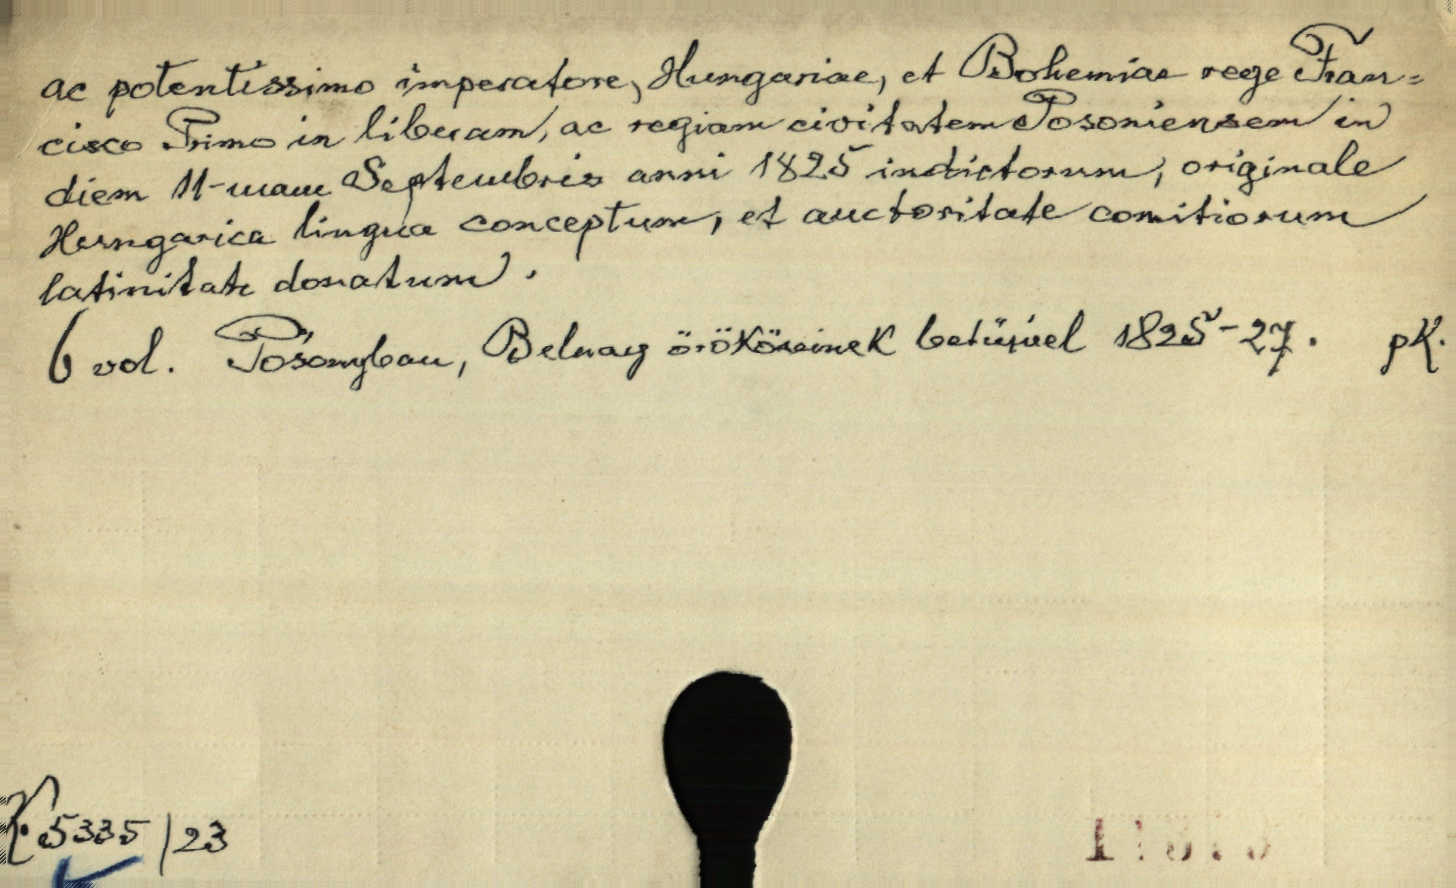 ac potentissimo imperatore, Hungariae, et Bohemiae rege Fran=
cisco Primo in liberam, ac regiam civitatem Posoniensem in
diem 11-mam Septembris anni 1825 indictorum, originale
Hungarica lingua conceptum, et auctoritate comitiorum
latinitate donatum.
6 vol. Posonyban, Belnay örököseinek betüivel 1825-27. pK.
K. 5335/23